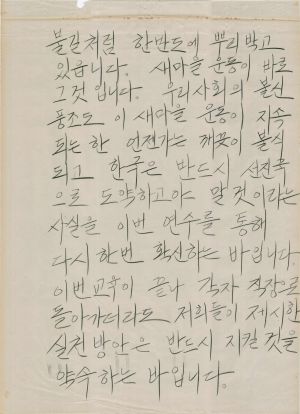 불길처럼 한반도에 뿌리박고
있읍니다. 새마을 운동이 바로
그것 입니다. 우리사회의 불신
풍조도 이 새마을 운동이 지속
되는 한 언젠가는 깨끗이 불식
되고 한국은 반드시 선진국
으로 도약하고야 말 것이라는
사실을 이번 연수를 통해
다시 한번 확신하는 바입니다.
이번교육이 끝나 각자 직장으로
돌아가더라도 저희들이 제시한
실천 방안은 반드시 지킬 것을
약속하는 바입니다.